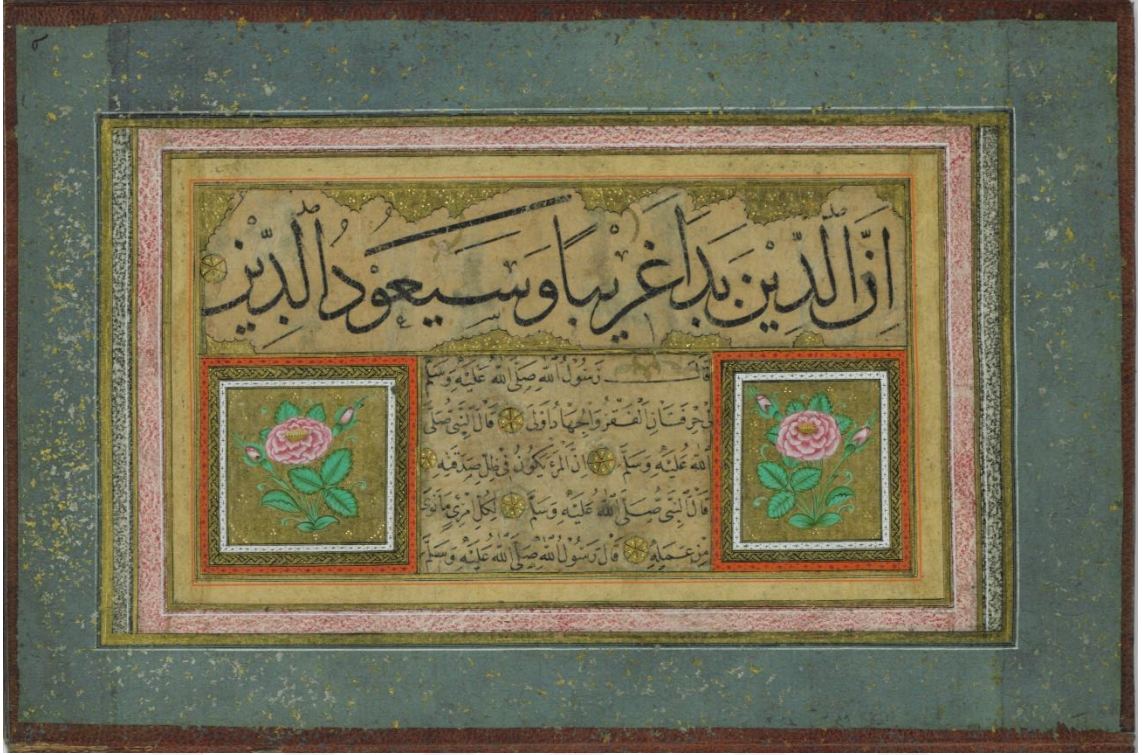 اِنَّ الدِّيْنَ بَدَا غَرِيْبًا وَسَيَعُوْدُ الدِّيْنُ
قَالَ رَسُوْلُ اللّٰهِ صَلَّى اللّٰهُ عَلَيْهِ وَسَلَّمَ
حِرْفَتَانِ الْفَقْرُ وَالْجِهَادُ قَالَ النَّبِيُّ صَلَّى
اللّٰهُ عَلَيْهِ وَسَلَّمَ اِنَّ الْمَرْءَ يَكُوْنُ فِى ظِلِّ صَدَقَتِهِ
قَالَ النَّبِيُّ صَلَّى اللّٰهُ عَلَيْهِ وَسَلَّمَ لِكُلِّ امْرِئٍ مَا نَوٰى
مِنْ عَمَلِهِ قَالَ رَسُوْلُ اللّٰهِ صَلَّى اللّٰهُ عَلَيْهِ وَسَلَّمَ